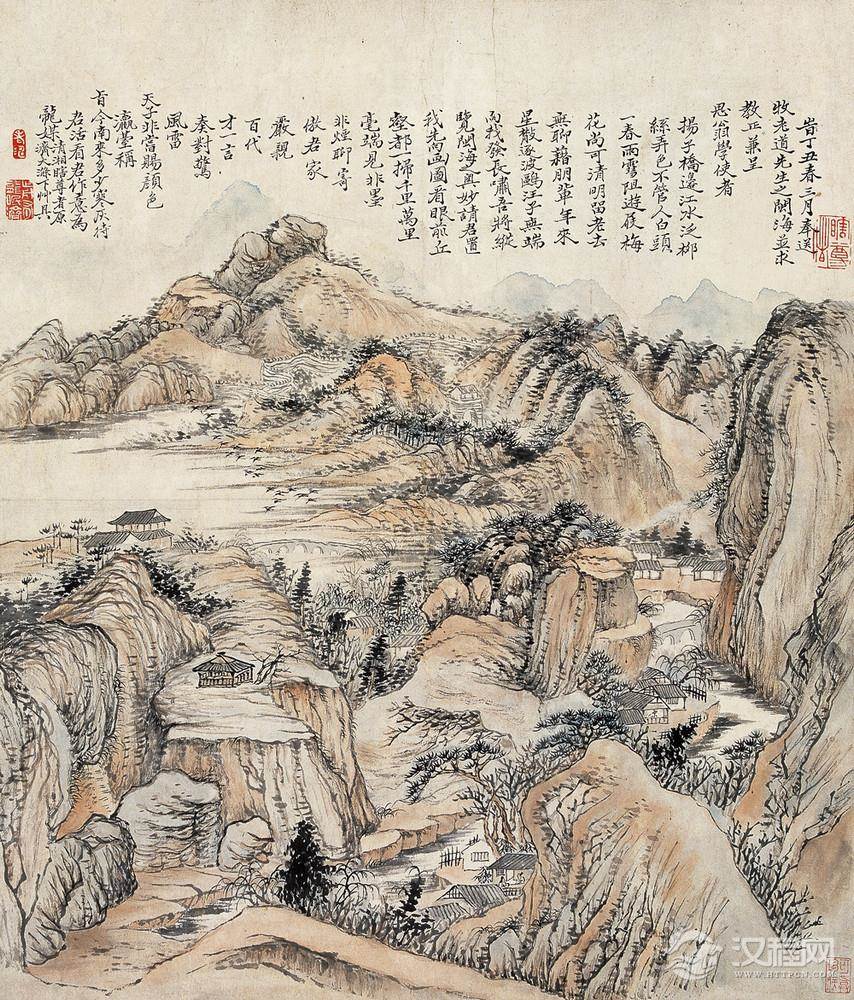 旹丁丑春三月奉送
牧老道先生之閩海並求
教正兼呈
思翁學使者
揚子橋邊江水泛柳
絲弄色不管人白頭
一春雨雪阻遊屐梅
花尚可清明留老去
無聊藉朋輩年來
星散逐波鷗汪子無端
向我發長嘯吾將縱
覽閩海奥妙請君置
我先画圖看眼前丘
壑都一掃千里萬里
毫端見非墨
非煙聊寄
傲君家
嚴親
百代
才一言
奏對驚
風雷
天子非常賜顏色
瀛臺稱
旨今南來多多寒灰待
君活看君作意為
龍媒清湘瞎尊者原
濟大滌下艸具
瞎尊者
汉程网
WWW.HTTPCN.COM